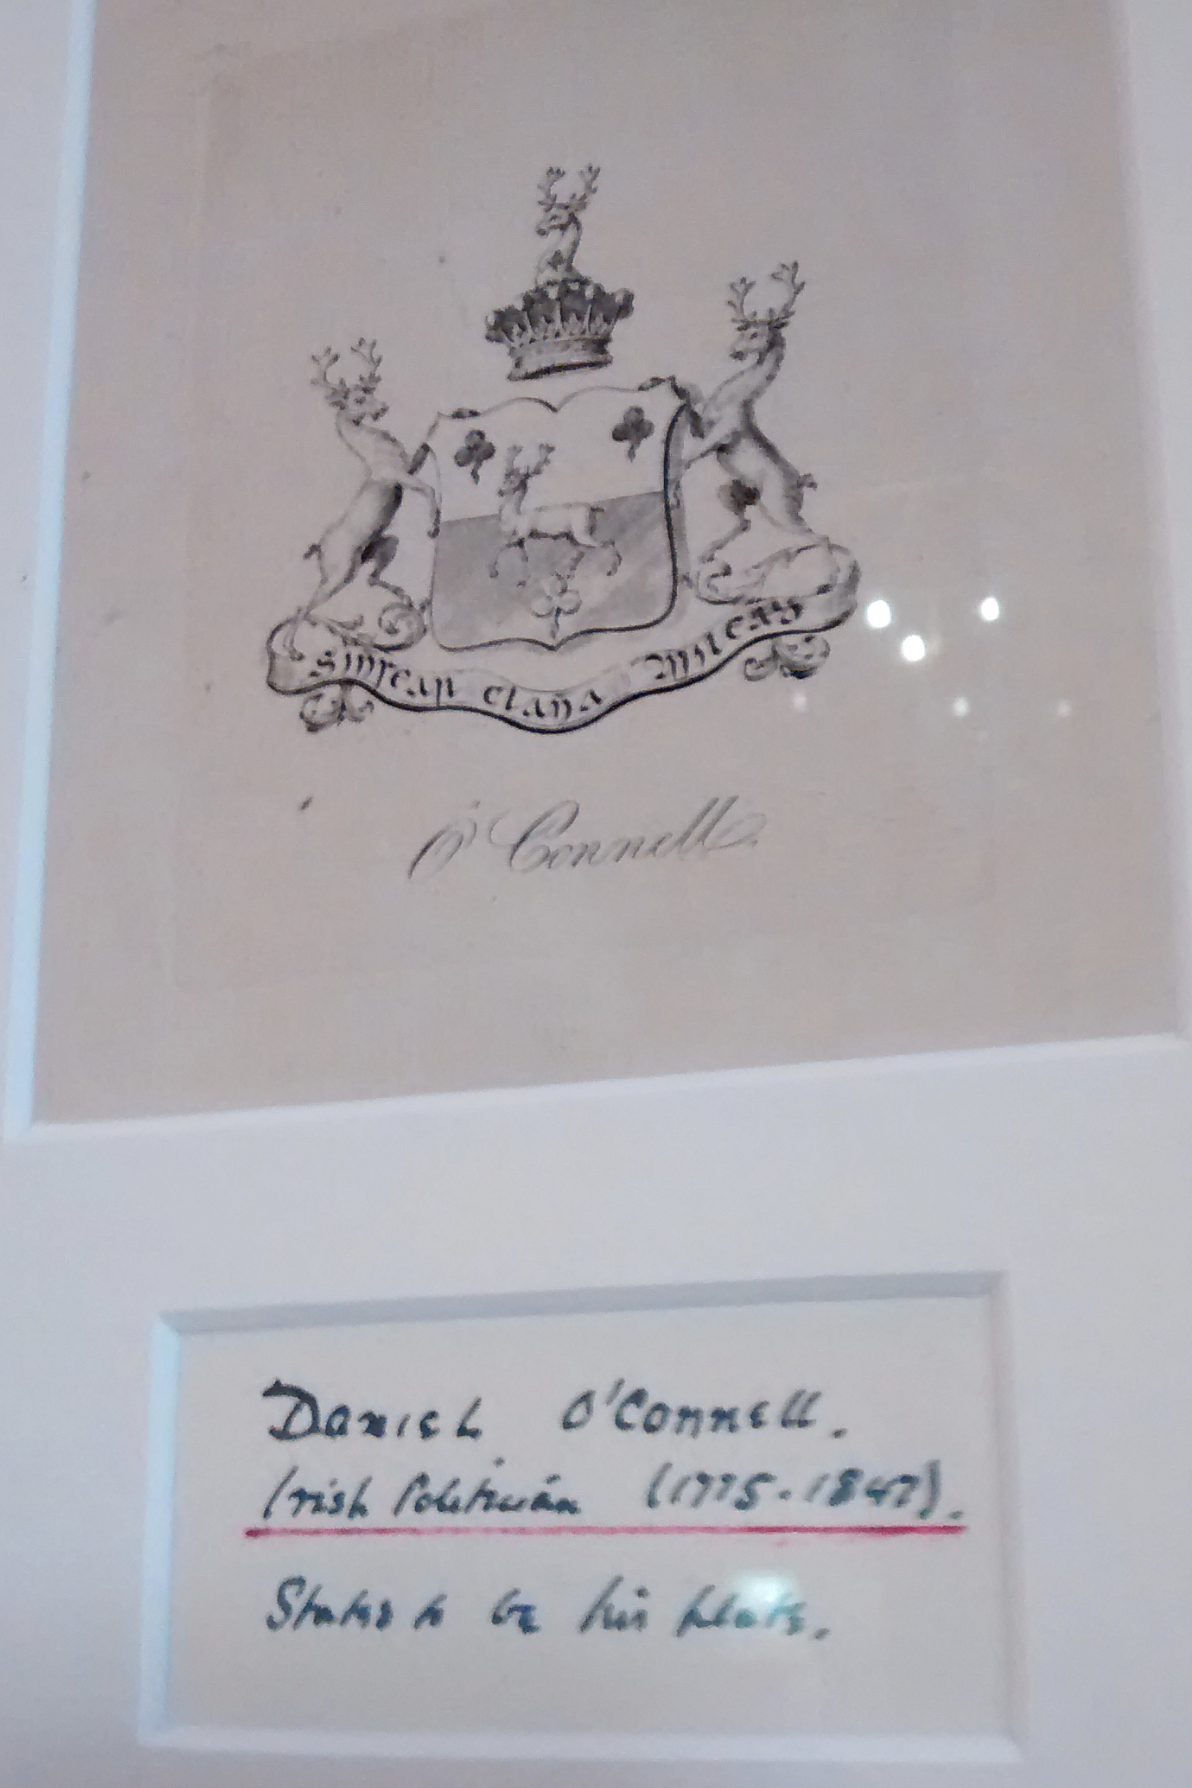 Sinsear claña Milead
O'Connell.
Daniel O'Connell.
Irish Politician (1775-1847).
Stated to be his plate.